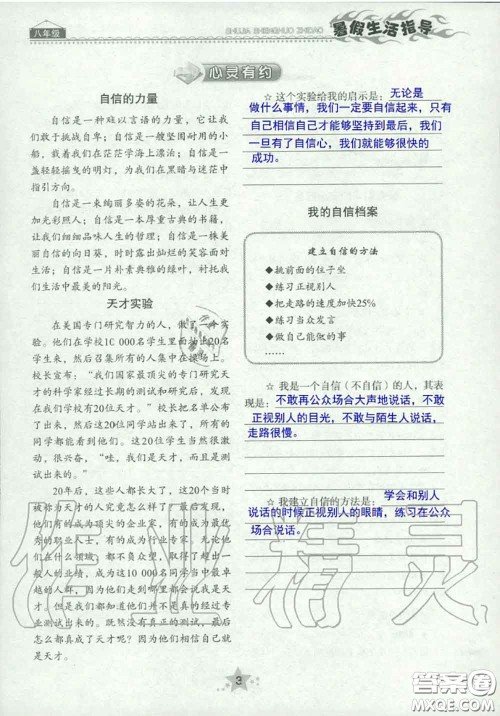 八年级
SHUJIA SHENGHUO ZHIDAO
暑假生活指导
心灵有约
自信的力量
自信是一种难以言语的力量，它让我
们敢于挑战自卑；自信是一艘坚固耐用的小
船，载着我们在茫茫学海上漂泊；自信是一
盏轻轻摇曳的明灯，为我们在黑暗与迷茫中
指引方向。
自信是一束绚丽多姿的花朵，让人生更
加光彩照人；自信是一本厚重古典的书籍，
让我们细细品味人生的哲理；自信是一株美
丽自信的向日葵，时时露出灿烂的笑容面对
生活；自信是一片朴素典雅的绿叶，衬托我
们生活中最美的阳光。
天才实验
在美国专门研究智力的人，做了一个实
验。他们在学校10 000名学生里面抽出20名
学生来，然后召集所有的人集中在操场上。
校长宣布：“我们国家最顶尖的专门研究天才
的科学家经过长期的测试和研究，发现在
我们学校有20位天才。”校长把名单公布
了出来，然后这20位同学站出来了，所有的
同学都能看到他们。这20位学生当然很激
动，很兴奋，“哇，我们是天才，而且是测
试出来的。”
20年后，这些人都长大了，这20个当时
被称为天才的人究竟怎么样了？最后发现，
他们有的成为顶尖的企业家，有的成为优秀
的职业人士，有的成为政府官员，无论他们
在什么领域，都不同凡响，而且每一个人都
有一番作业的业绩，是10 000名同学当中最卓
越的人群，因为他们都知道自己是天才。但
是，我们都知道他们并不是真的经过专业
测试出来的。既然没有真正的测试，最后
怎么都真成了天才呢？因为他们相信自己就
是天才。
☆ 这个实验给我的启示是：无论是
做什么事情，我们一定要自信起来，只有
自己相信自己才能够坚持到最后，我们
一旦有了自信心，我们就能够很快的
成功。
我的自信档案
建立自信的方法
◆挑前面的位子坐
◆练习正视别人
◆把走路的速度加快25%
◆练习当众发言
◆做自己能做的事
……
☆ 我是一个自信（不自信）的人，其表
现是：不敢再公众场合大声地说话，不敢
正视别人的目光，不敢与陌生人说话，
走路很慢。
☆ 我建立自信的方法是：学会和别人
说话的时候正视别人的眼睛，练习在公众
场合说话。
作业精灵
3
答案圈
MXQE.COM